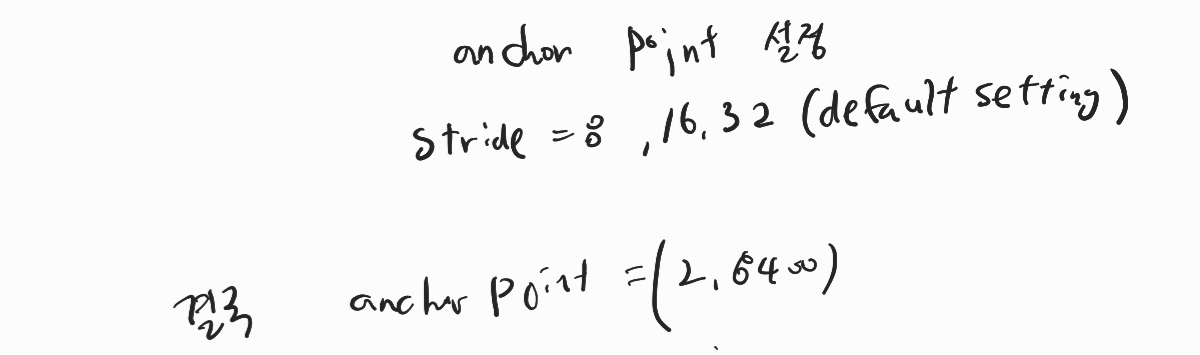 anchor point 설정
stride = 8, 16, 32 (default setting)
결국 anchor point = (2, 8400)